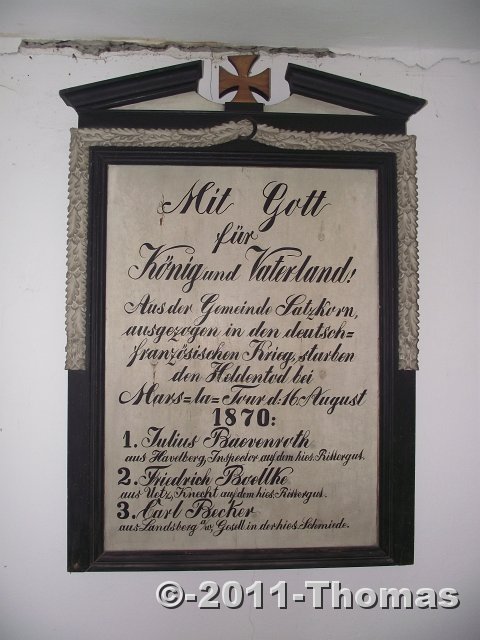 Mit Gott
für
König und Vaterland!
Aus der Gemeinde Satzkorn,
ausgezogen in den deutsch=
französischen Krieg, starben
den Heldentod bei
Mars=la=Tour d. 16. August
1870:
1. Julius Baevenroth
aus Havelberg, Inspector auf dem hies. Rittergut.
2. Friedrich Boeltke
aus Uetz, Knecht auf dem hies. Rittergut.
3. Carl Becker
aus Landsberg a/w, Gesell in der hies. Schmiede.
©-2011-Thomas